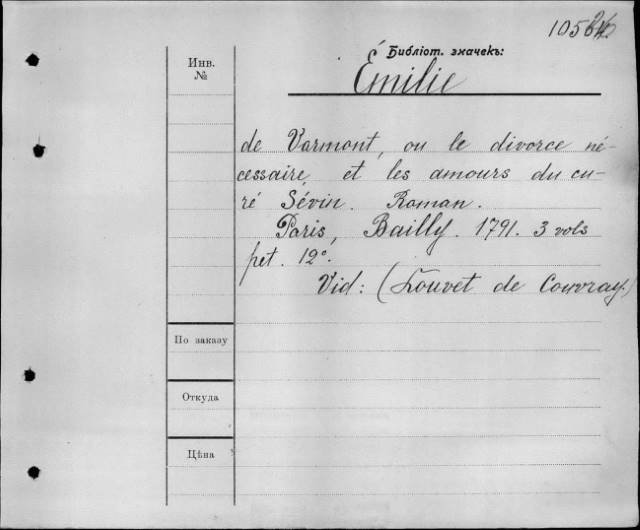 Библіот. значекъ:
Émilie
Инв.
№
de Varmont, ou le divorce né-
cessaire et les amours du cu-
ré Sévin. Roman.
Paris, Bailly. 1791. 3 vols
pet. 12°.
Vid: (Louvet de Couvray.)
По заказу
Откуда
Цѣна